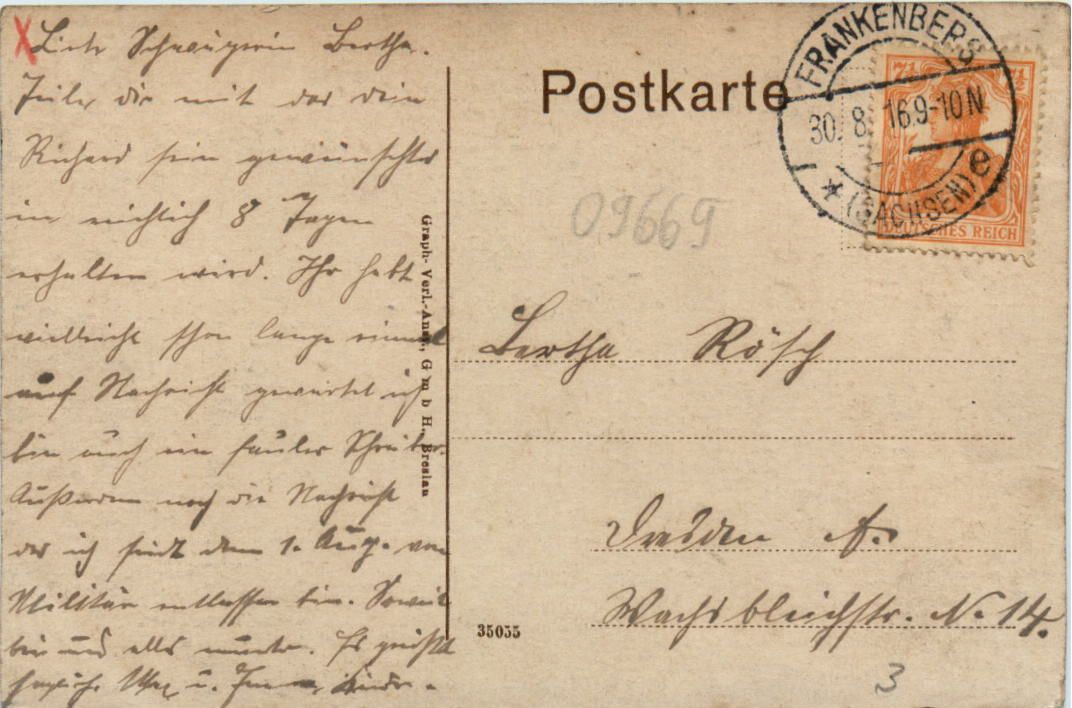 Liebe Schwägerin Bertha.
Teile dir mit das dein
Richard sein gewünschtes
in 8 Tagen
erhalten wird. Ihr habt
vielleicht schon lange einmal
auf Nachricht gewartet ich
bin auch ein fauler Schreiber.
Außerdem noch die Nachricht
das ich seit dem 1. Aug. vom
Militär entlassen bin. Soweit
sind alle munter. Es grüßt
u. Kinder.
Graph. Verl.-Anst., G m b H., Breslau
Postkarte
FRANKENBERG
30. 8. 16. 9-10 N
* (SACHSEN) e
7½ 7½
DEUTSCHES REICH
09669
Bertha Rösch
Dresden A.
Wachsbleichstr. N. 14.
35035
3